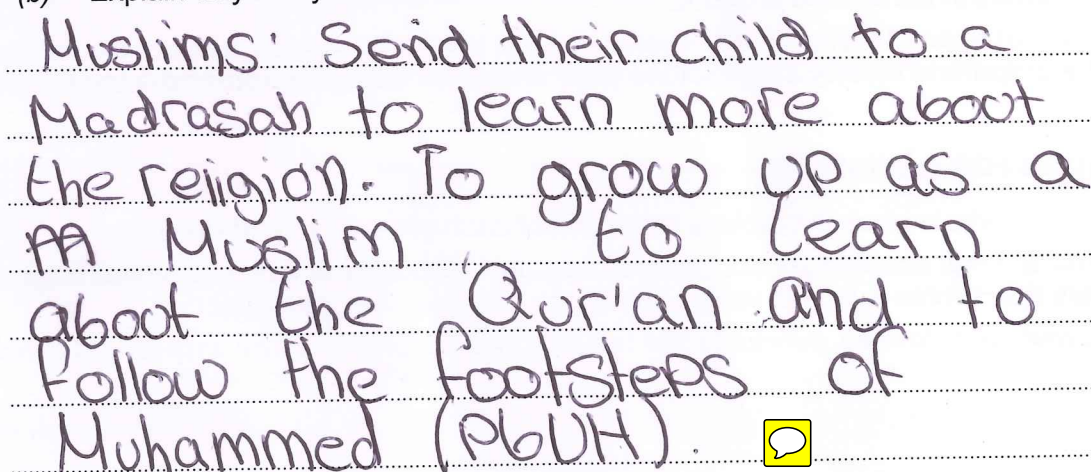 Muslims. Send their child to a
Madrasah to learn more about
the religion. To grow up as a
Muslim, to learn
about the Qur'an and to
follow the footsteps of
Muhammed (PbUH).